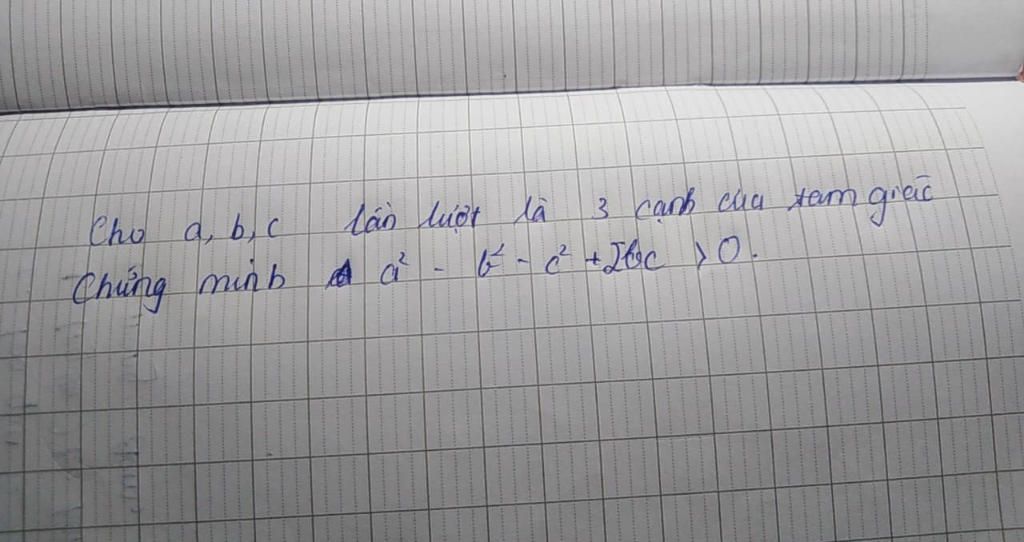 Cho a, b, c lần lượt là 3 cạnh của tam giác
Chứng minh a² - b² - c² + 2bc > 0.